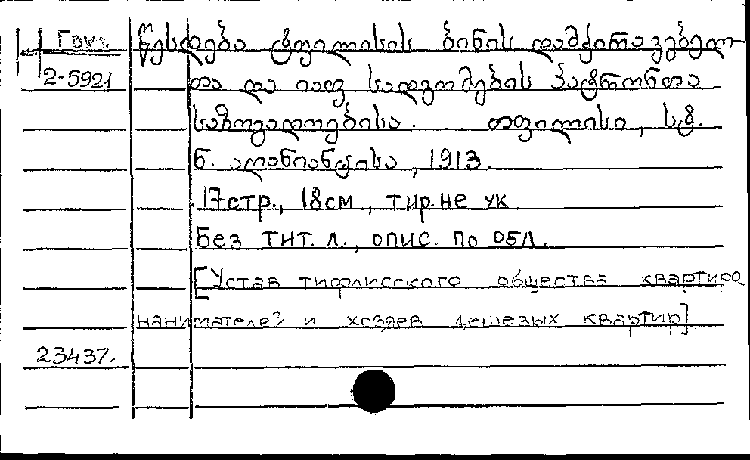 Груз. წესდება ტფილისის ბინის დამქირავებელ-
2-5921 თა და იაფ სადგომების პატრონთა
საზოგადოებისა. თფილისი, ს.ტ.
ნ. აღანიანცისა, 1913.
17стр., 18см., тир. не ук.
Без тит. л., опис. по обл.
[Устав тифлисского общества квартиро
нанимателей и хозяев дешевых квартир]
23437.